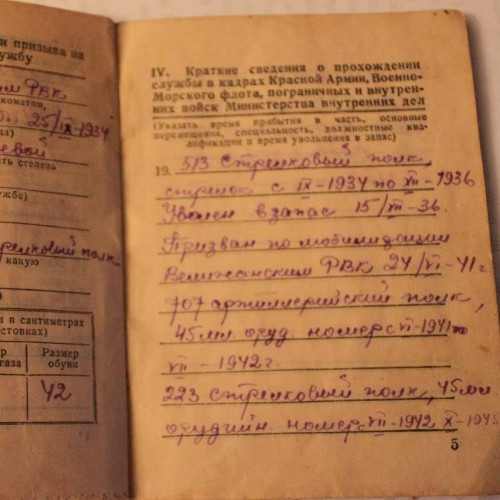 и призыва на
службу
РВК
коматом,
25/IX-1934
евой
ать степень
ужбе)
релковый полк
какую
и в сантиметрах
остовках)
Размер
обуви
газа
42
IV. Краткие сведения о прохождении
службы в кадрах Красной Армии, Военно-
Морского флота, пограничных и внутрен-
них войск Министерства внутренних дел
(Указать время прибытия в часть, основные
перемещения, специальность, должностные ква-
лификации и время увольнения в запас)
19. 513 стрелковый полк,
стрелок с IX-1934 по XII-1936
Уволен в запас 15/XII-36.
Призван по мобилизации
Велижанским РВК 24/VI-41г
707 артиллерийский полк,
45мл. оруд. номер с VI-1941 по
VII-1942г.
223 стрелковый полк, 45мл.
орудийн. номер VII-1942 X-1945
5